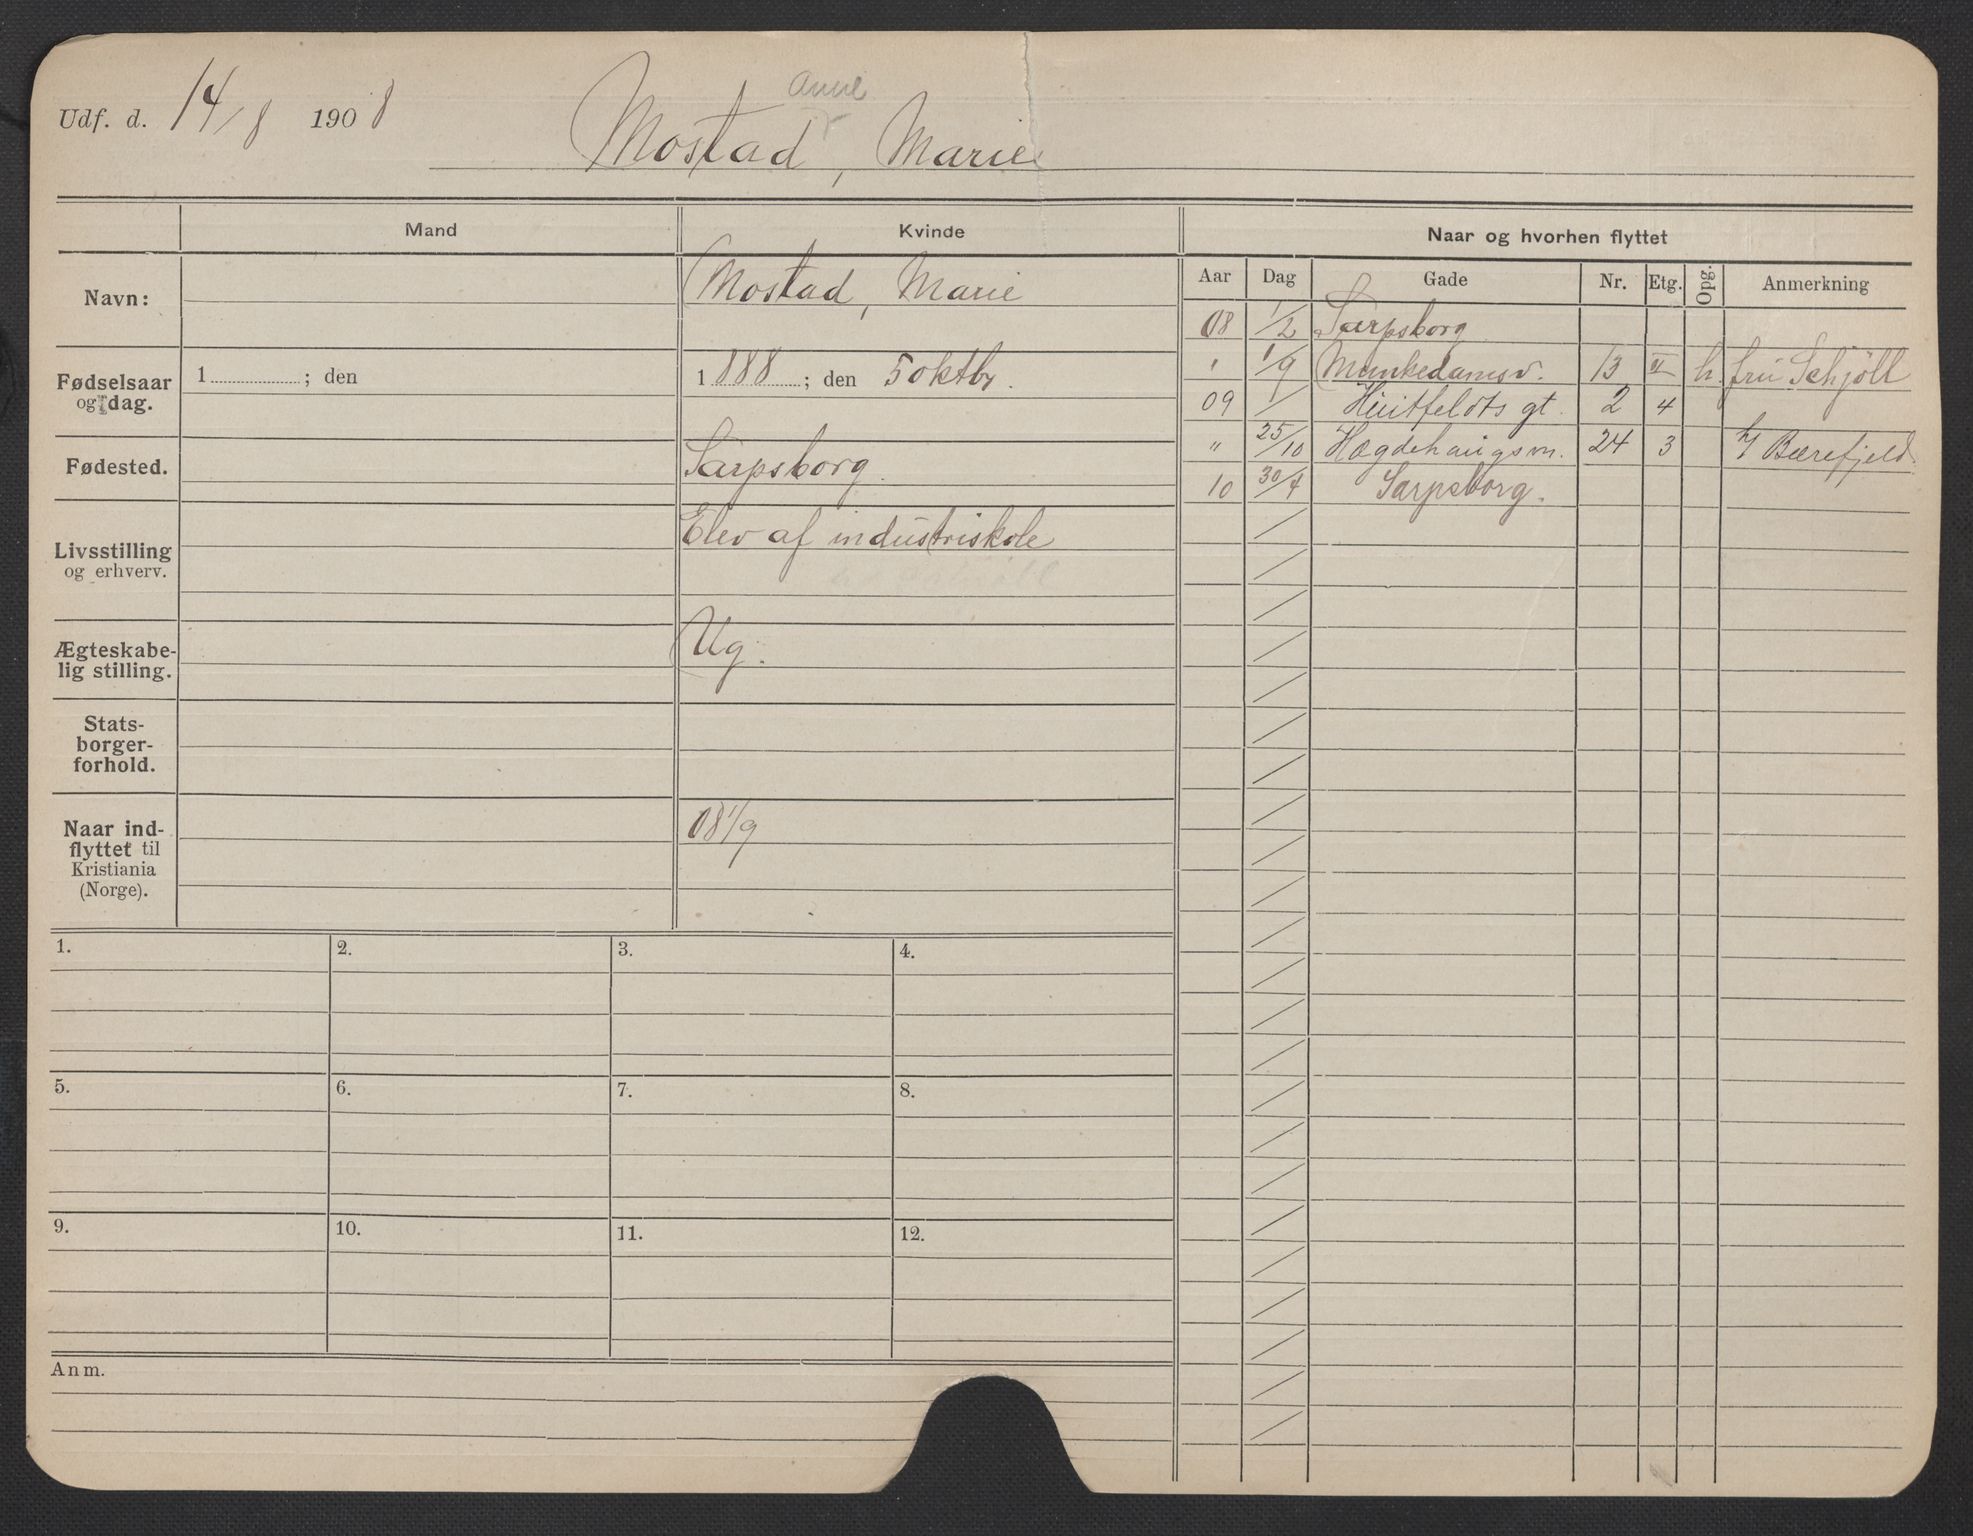 Udf. d. 14/8 1908
Anne
Mostad, Marie
Mand
Kvinde
Naar og hvorhen flyttet
Navn:
Mostad, Marie
Fødselsaar
og dag.
1 ; den
1888 ; den 5 oktbr.
Fødested.
Sarpsborg.
Livsstilling
og erhverv.
Elev af industriskole
Ægteskabe-
lig stilling.
Ug.
Stats-
borger-
forhold.
Naar ind-
flyttet til
Kristiania
(Norge).
08 1/9
Aar Dag Gade Nr. Etg. Opg. Anmerkning
08 1/2 Sarpsborg
" 1/9 Munkedamsv. 13 II h. fru Schjöll
09 / Huitfeldts gt. 2 4
" 25/10 Hægdehaugsvn. 24 3 h/ Bærefjeld.
10 30/4 Sarpsborg.
1. 2. 3. 4.
5. 6. 7. 8.
9. 10. 11. 12.
Anm.